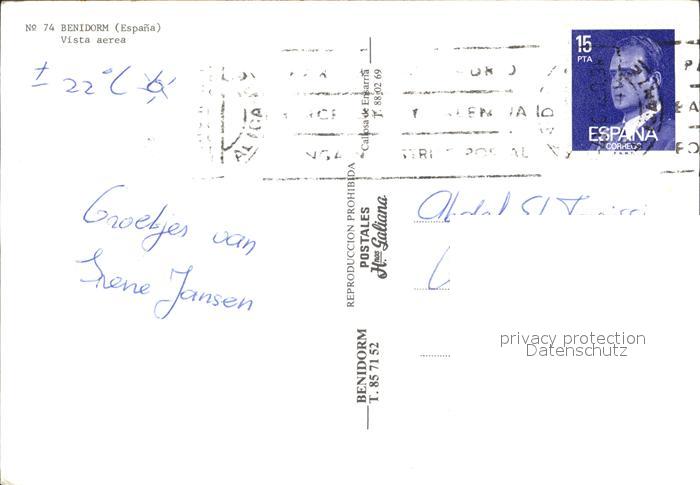 Nº 74 BENIDORM (España)
Vista aerea
± 22°C
Groetjes van
Irene Jansen
REPRODUCCION PROHIBIDA
POSTALES
Hnos Galiana
Callosa de Ensarriá
T. 88 02 69
BENIDORM
T. 85 71 52
15
PTA
ESPAÑA
CORREOS
POSTAL
privacy protection
Datenschutz